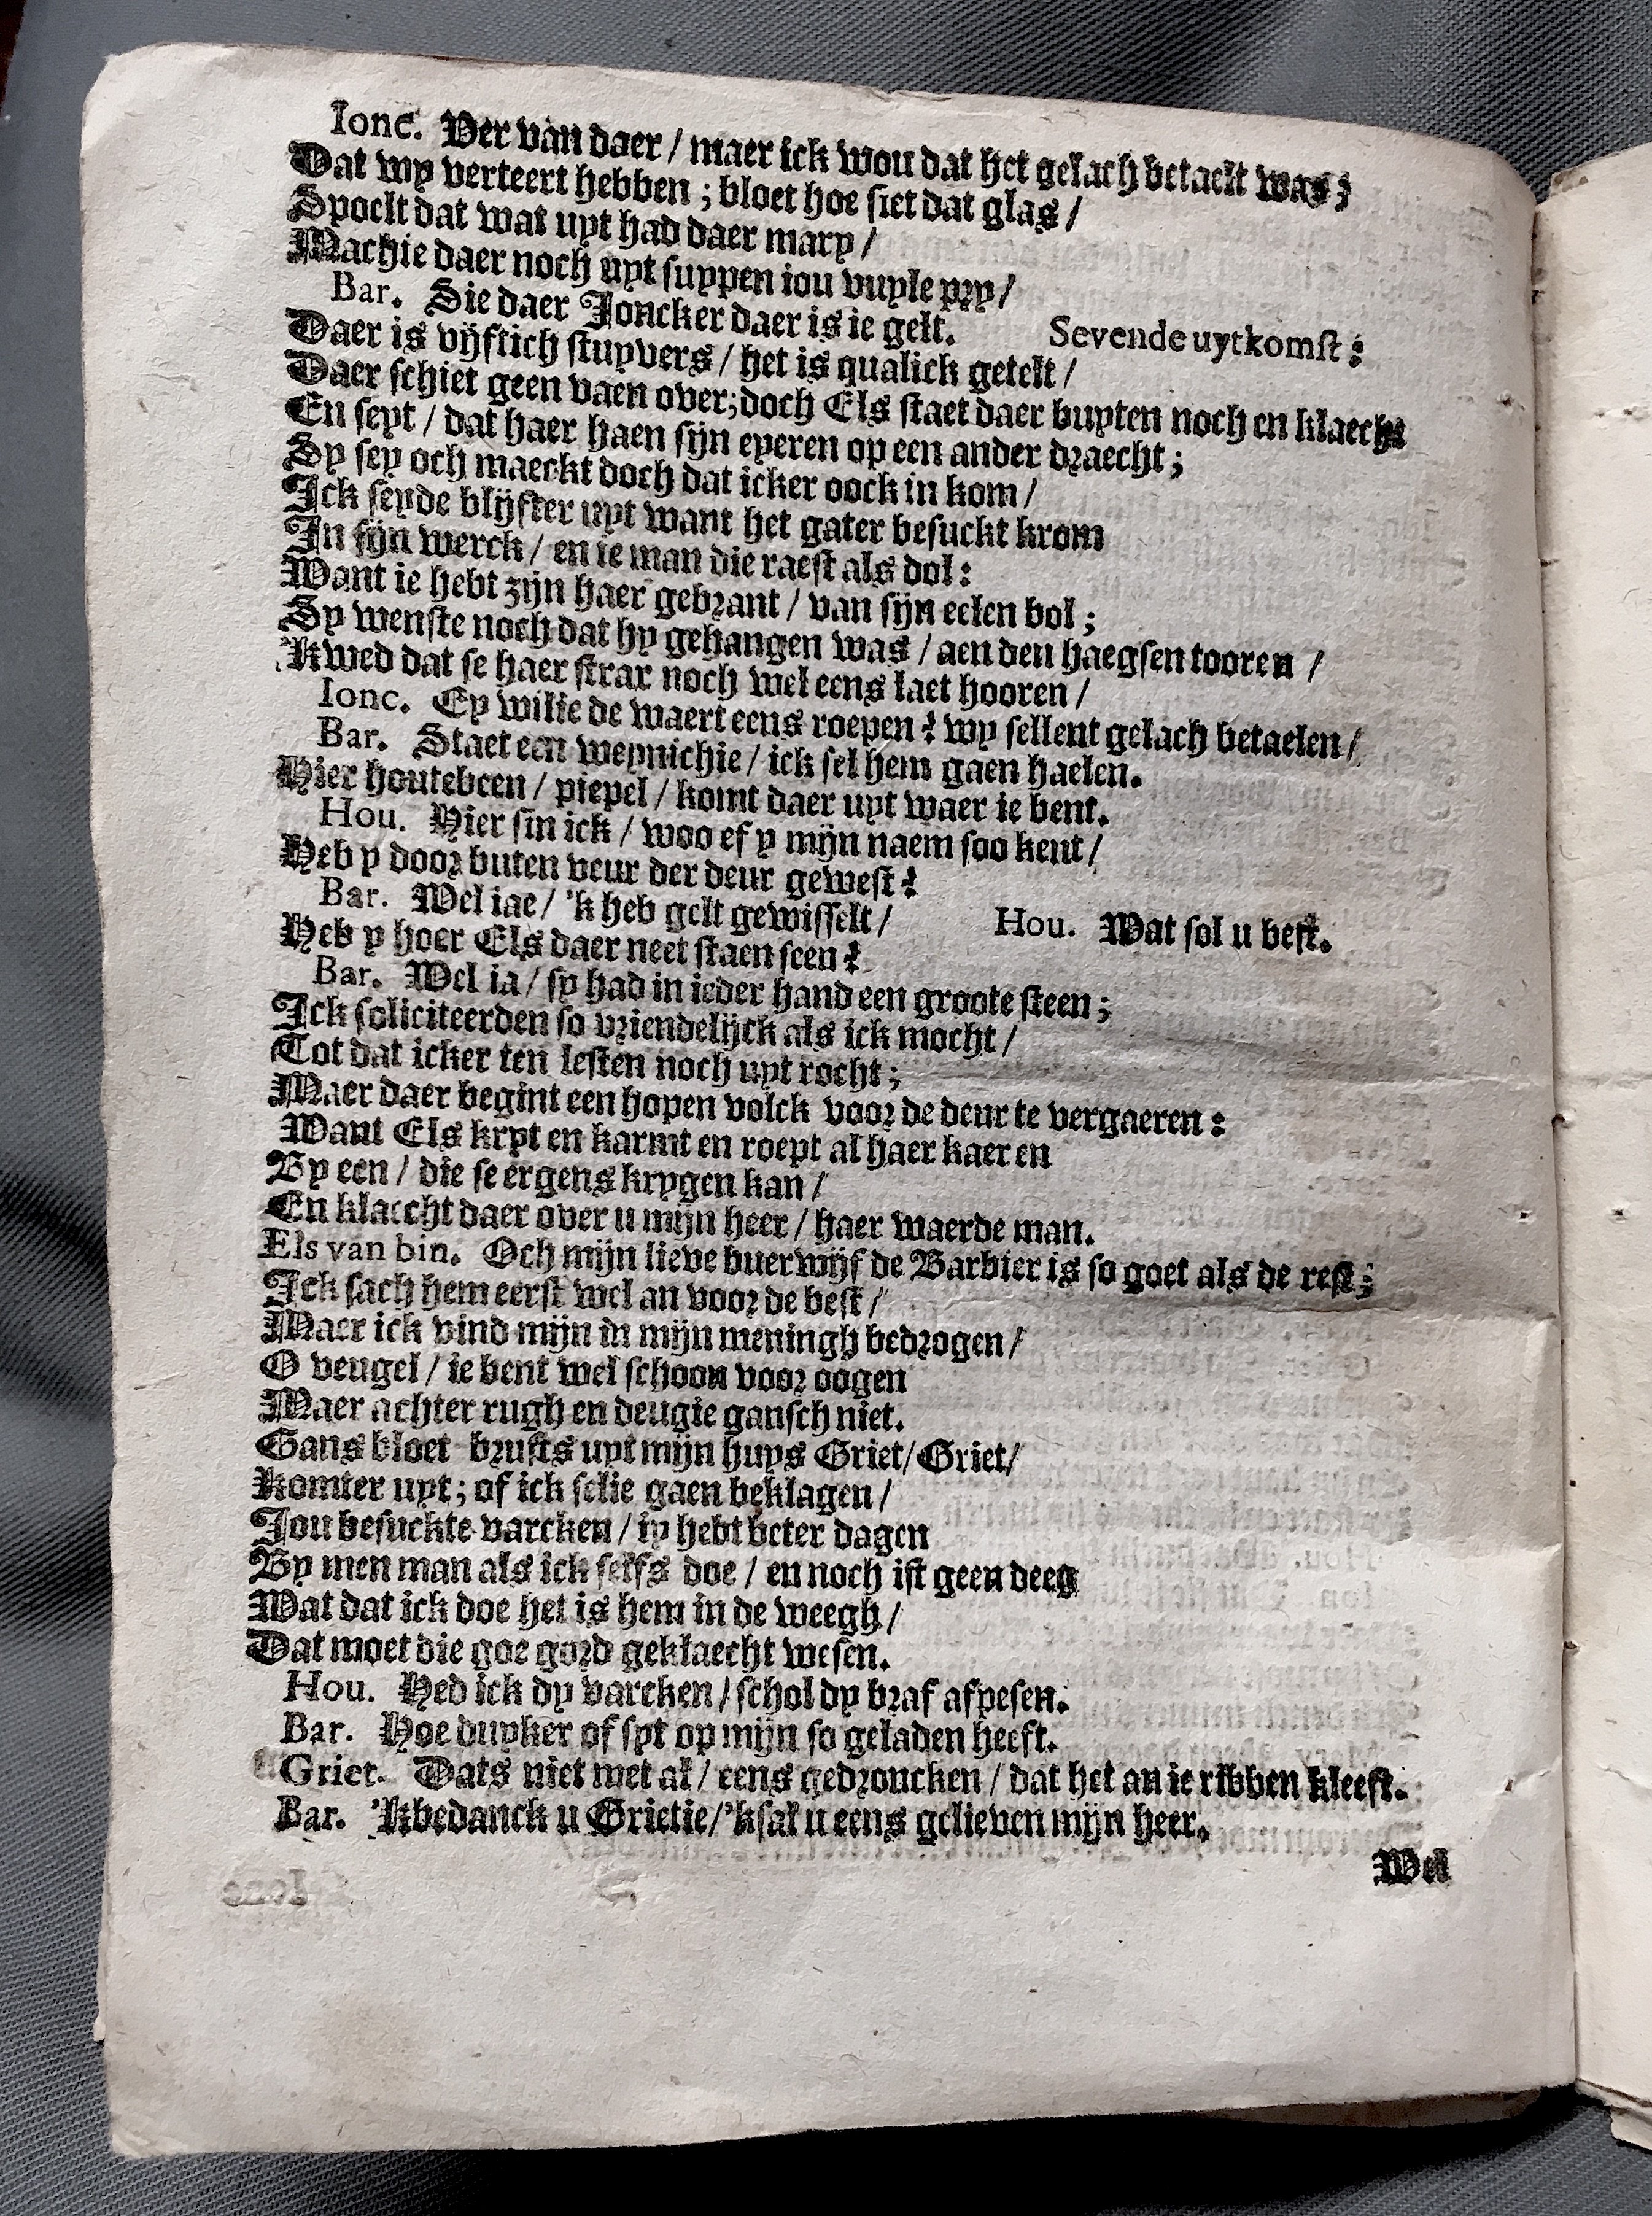 Ionc. Ver van daer / maer ick wou dat het gelach betaelt was;
Dat wy verteert hebben ; bloet hoe siet dat glas /
Spoelt dat wat uyt had daer mary /
Machie daer noch uyt suypen iou vuyle pry /
Bar. Sie daer Joncker daer is ie gelt. Sevende uytkomst:
Daer is vijftich stuyvers / het is qualick getelt /
Daer schiet geen vaen over; doch Els staet daer buyten noch en klaecht
En seyt / dat haer haen sijn eyeren op een ander draecht ;
Sy sey och maeckt doch dat icker oock in kom /
Ick seyde blijfter uyt want het gater besuckt krom
In sijn werck / en ie man die raest als dol :
Want ie hebt zijn haer gebrant / van sijn eelen bol ;
Sy wenste noch dat hy gehangen was / aen den haegsen tooren /
'Kwed dat se haer strax noch wel eens laet hooren /
Ionc. Ey wilie de waert eens roepen? wy sellent gelach betaelen /
Bar. Staet een weynichie / ick sel hem gaen haelen.
Hier houtebeen / piepel / komt daer uyt waer ie bent.
Hou. Hier sin ick / woo ef y mijn naem soo kent /
Heb y door buten veur der deur gewest?
Bar. Wel iae / 'k heb gelt gewisselt / Hou. Wat sol u best.
Heb y hoer Els daer neet staen seen?
Bar. Wel ia / sy had in ieder hand een groote steen ;
Ick soliciteerden so vriendelijck als ick mocht /
Tot dat icker ten lesten noch uyt rocht ;
Maer daer begint een hopen volck voor de deur te vergaeren :
Want Els kryt en karmt en roept al haer kaeren
By een / die se ergens krygen kan /
En klaecht daer over u mijn heer / haer waerde man.
Els van bin. Och mijn lieve buerwijf de Barbier is so goet als de rest;
Ick sach hem eerst wel an voor de best /
Maer ick vind mijn in mijn meningh bedrogen /
O veugel / ie bent wel schoon voor oogen
Maer achter rugh en deugie gansch niet.
Gans bloet brusts uyt mijn huys Griet / Griet /
Komter uyt ; of ick selie gaen beklagen /
Jou besuckte varcken / iy hebt beter dagen
By men man als ick selfs doe / en noch ist geen deeg
Wat dat ick doe het is hem in de weegh /
Dat moet die goe gord geklaecht wesen.
Hou. Hed ick dy varcken / schol dy braf afpesen.
Bar. Hoe duyker of syt op mijn so geladen heeft.
Griet. Dats niet met al / eens gedroncken / dat het an ie ribben kleeft.
Bar. 'Kbedanck u Grietie / 'ksal u eens gelieven mijn heer.
Wel